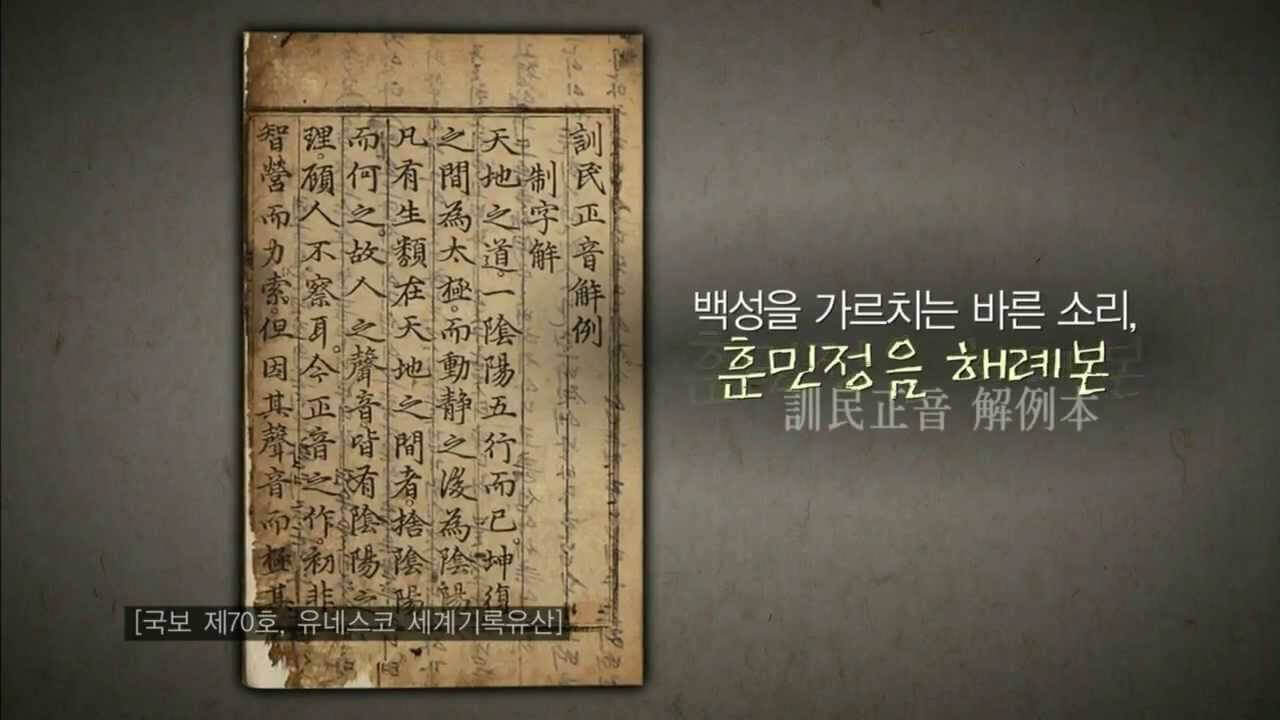 訓民正音解例
制字解
天地之道。一陰陽五行而已。坤復
之間為太極。而動静之後為陰陽
凡有生類在天地之間者。捨陰陽
而何之。故人之聲音皆有陰陽之
理。顧人不察耳。今正音之作。初非
智營而力索。但因其聲音而極其
백성을 가르치는 바른 소리,
훈민정음 해례본
訓民正音 解例本
[국보 제70호, 유네스코 세계기록유산]